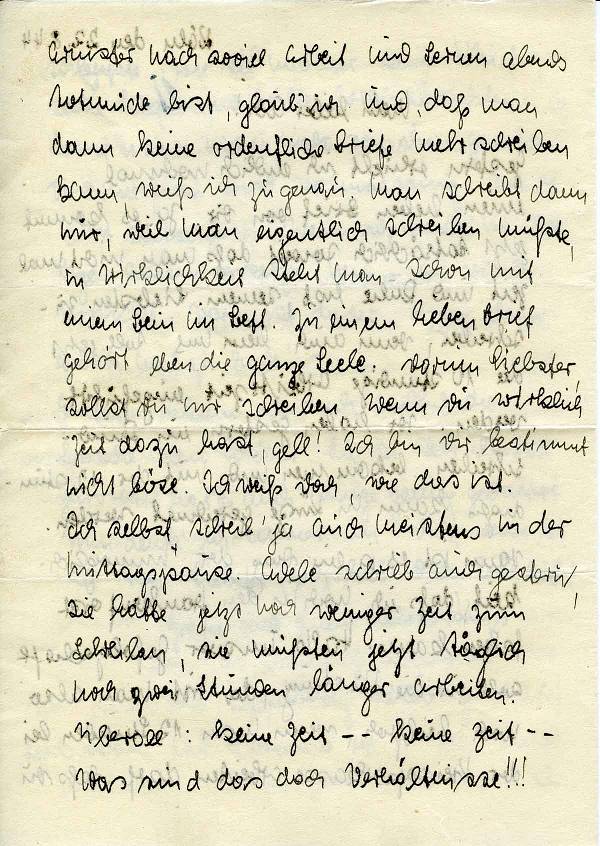 nach soviel Arbeit und Lernen abends
totmüde bist, glaub' ich und, daß man
dann keine ordentliche Briefe mehr schreiben
kann, weiß ich zu genau. Man schreibt dann
nur, weil man eigentlich schreiben müßte,
in Wirklichkeit steht man schon mit
einem Bein im Bett. Zu einem lieben Brief
gehört eben die ganze Seele. Darum Liebster
sollst du mir schreiben, wenn du wirklich
Zeit dazu hast, gell! Ich bin dir bestimmt
nicht böse. Ich weiß doch, wie das ist.
Ich selbst schreib' ja auch meistens in der
Mittagspause. Adele schrieb auch gestern,
sie hätte jetzt noch weniger Zeit zum
Schreiben, sie müßten jetzt täglich
noch zwei Stunden länger arbeiten.
Überall: keine Zeit -- keine Zeit --
Was sind das doch Verhältnisse!!!